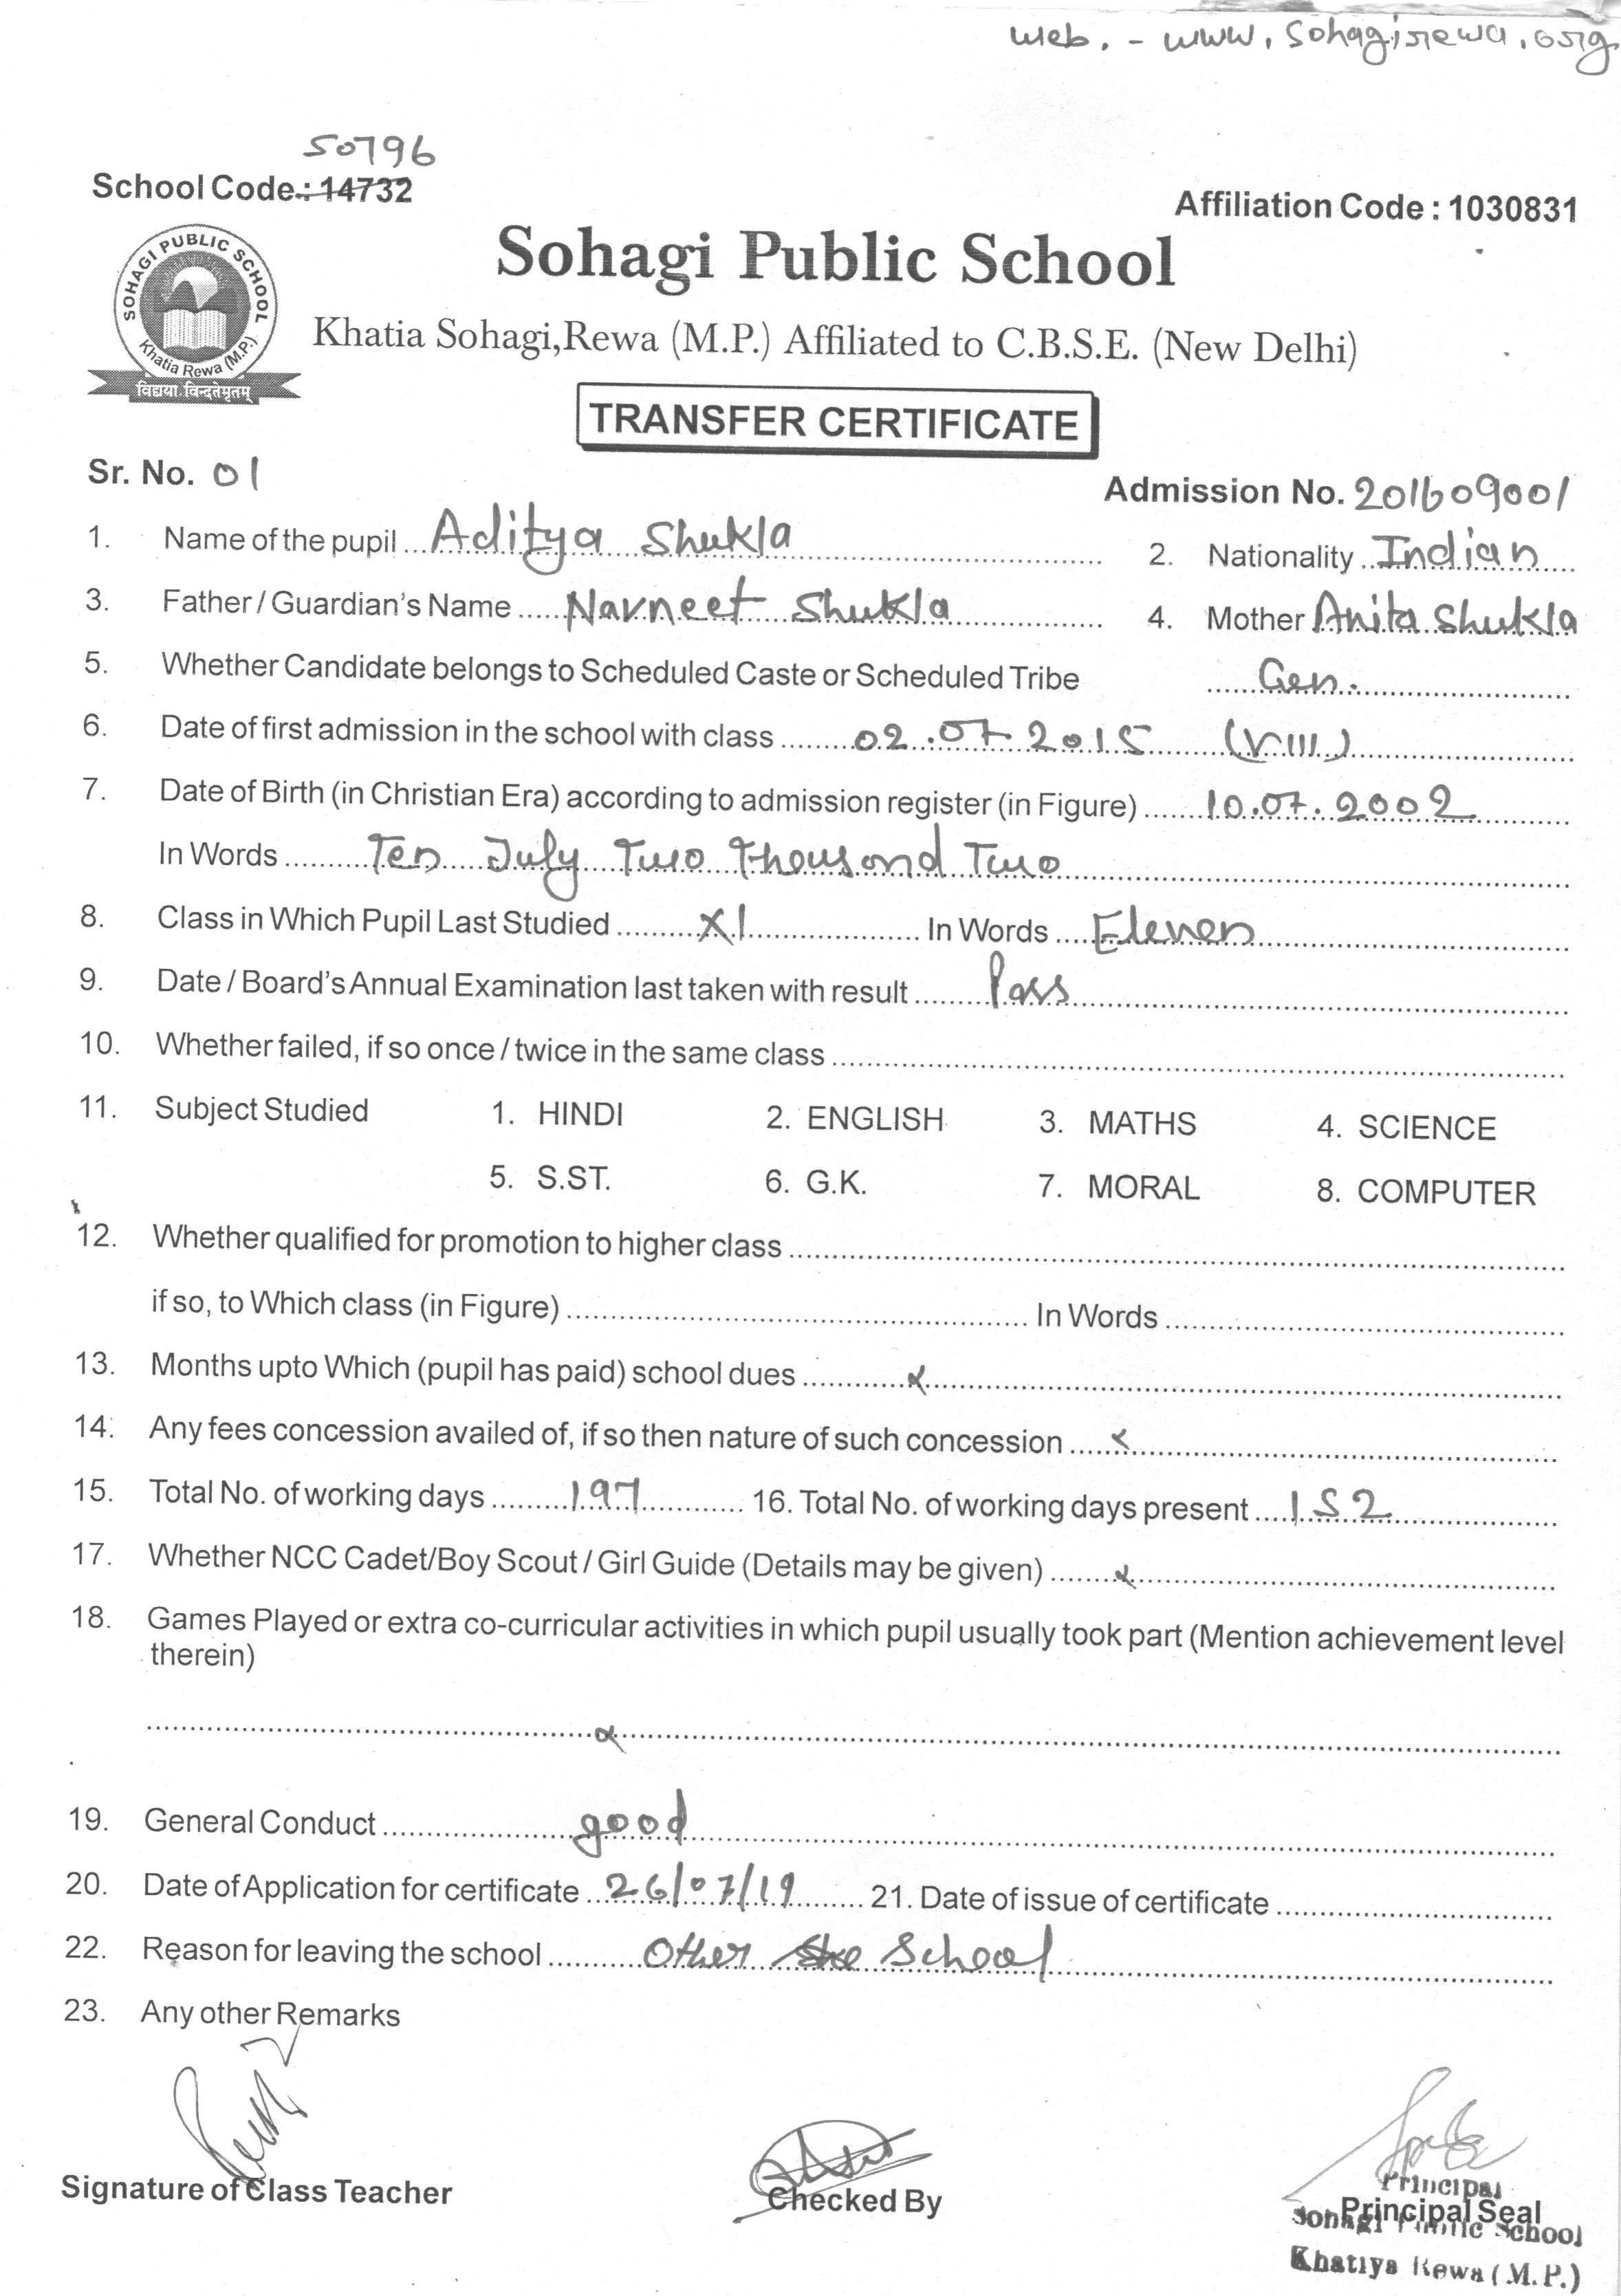 web. - www.sohagirewa.org
50796
School Code.: 14732
Affiliation Code : 1030831
SOHAGI PUBLIC SCHOOL
Khatia Rewa (M.P.)
विद्यया विन्दतेमृतम्
Sohagi Public School
Khatia Sohagi,Rewa (M.P.) Affiliated to C.B.S.E. (New Delhi)
TRANSFER CERTIFICATE
Sr. No. 01
Admission No. 201609001
1. Name of the pupil Aditya Shukla 2. Nationality Indian
3. Father / Guardian's Name Navneet Shukla 4. Mother Anita Shukla
5. Whether Candidate belongs to Scheduled Caste or Scheduled Tribe Gen.
6. Date of first admission in the school with class 02.07.2015 (VIII)
7. Date of Birth (in Christian Era) according to admission register (in Figure) 10.07.2002
In Words Ten July Two thousand Two
8. Class in Which Pupil Last Studied XI In Words Eleven
9. Date / Board's Annual Examination last taken with result Pass
10. Whether failed, if so once / twice in the same class
11. Subject Studied 1. HINDI 2. ENGLISH 3. MATHS 4. SCIENCE
5. S.ST. 6. G.K. 7. MORAL 8. COMPUTER
12. Whether qualified for promotion to higher class
if so, to Which class (in Figure) In Words
13. Months upto Which (pupil has paid) school dues
14. Any fees concession availed of, if so then nature of such concession
15. Total No. of working days 197 16. Total No. of working days present 152
17. Whether NCC Cadet/Boy Scout / Girl Guide (Details may be given)
18. Games Played or extra co-curricular activities in which pupil usually took part (Mention achievement level
therein)
19. General Conduct good
20. Date of Application for certificate 26/07/19 21. Date of issue of certificate
22. Reason for leaving the school Other School
23. Any other Remarks
Signature of Class Teacher
Checked By
Principal
Principal Seal
Sohagi Public School
Khatiya Rewa (M.P.)